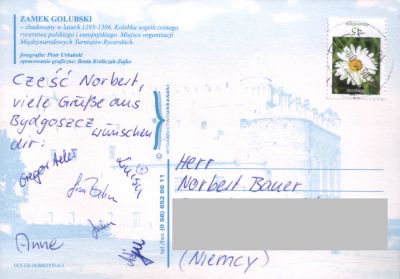 ZAMEK GOLUBSKI
– zbudowany w latach 1293-1306. Kolebka współczesnego
rycerstwa polskiego i europejskiego. Miejsce organizacji
Międzynarodowych Turniejów Rycerskich.
fotografia: Piotr Urbański
opracowanie graficzne: Beata Króliczak-Zajko
Cześć Norbert,
viele Grüße aus
Bydgoszcz wünschen
dir:
Gregor
Luisa
Anne
tel./fax (0 56) 652 06 11
45
Herr
Norbert Bauer
(Niemcy)
GOLUB-DOBRZYŃ